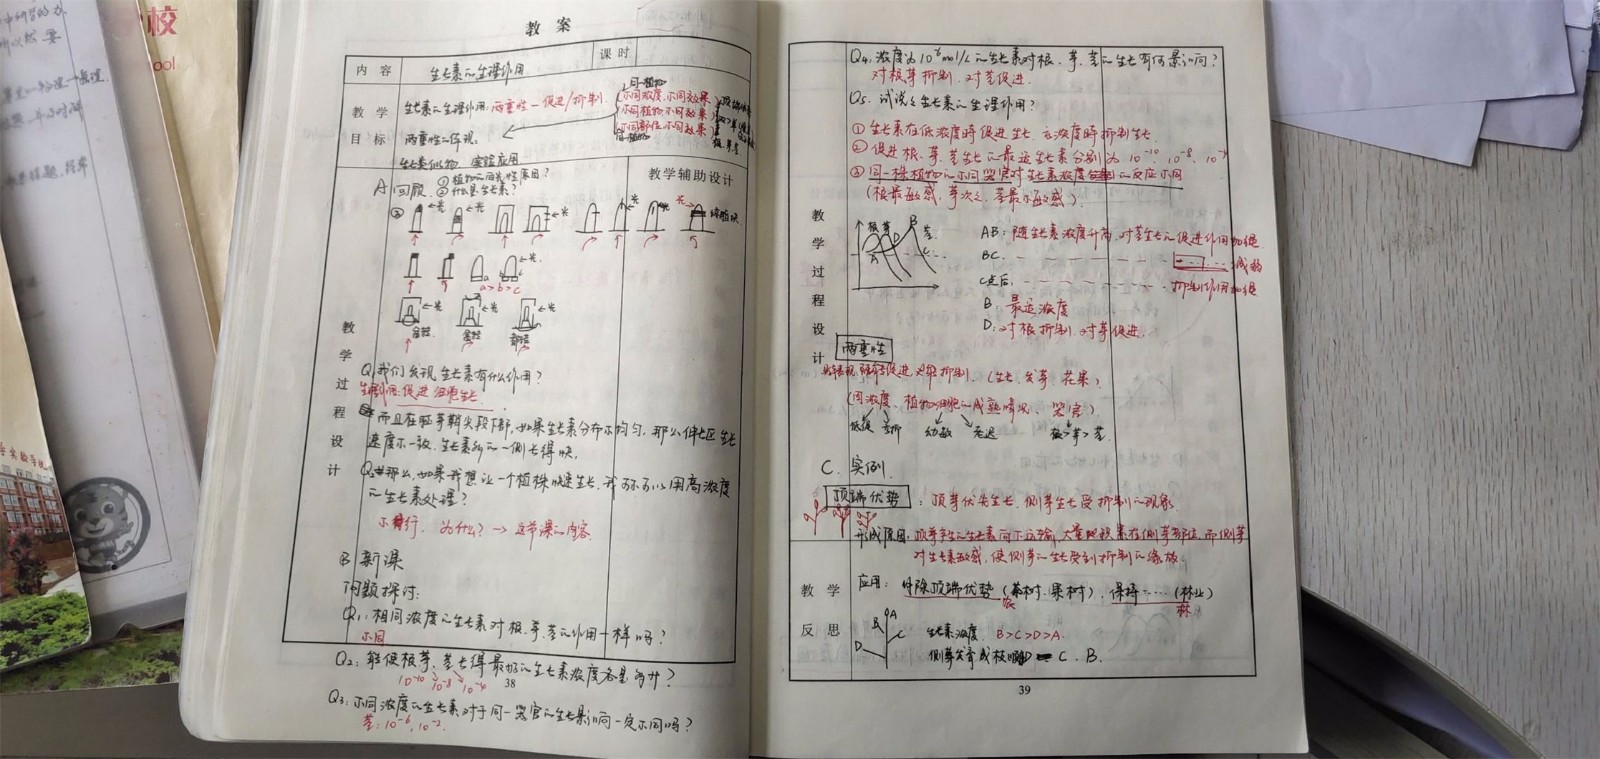 教案
课时
内容 生长素的生理作用
教学目标
生长素的生理作用:两重性—促进/抑制
同一植物
不同浓度,不同效果
不同植物不同效果
不同部位不同效果
同一植物
两重性的体现:
生长素类似物 实践应用
教学辅助设计
A 回顾 ①植物的向光性原因?
②什么是生长素?
③
光
光
光
光
光
光
a>b>c
光
光
光
教学过程设计
Q:我们发现生长素有什么作用?
生理作用:促进细胞生长
而且在胚芽鞘尖段下部,如果生长素分布不均匀,那么伸长区生长
速度不一致,生长素多的一侧长得快。
那么,如果我想让一个植株快速生长,我可不可以用高浓度
的生长素处理?
不行. 为什么?→这节课的内容
B 新课
问题探讨:
Q1:相同浓度的生长素对根、芽、茎的作用一样吗?
不同
Q2:能使根、芽、茎长得最好的生长素浓度各是多少?
10⁻¹⁰ 10⁻⁸ 10⁻⁴
38
Q3:不同浓度的生长素对于同一器官的生长影响一定不同吗?
茎:10⁻⁶, 10⁻².
Q4:浓度为10⁻⁶mol/L的生长素对根、芽、茎的生长有何影响?
对根芽抑制,对茎促进.
Q5:试说生长素的生理作用?
①生长素在低浓度时促进生长 高浓度时抑制生长.
②促进根、芽、茎生长的最适生长素分别为10⁻¹⁰、10⁻⁸、10⁻⁴
③同一株植物的不同器官对生长素浓度的反应不同
(根最敏感,芽次之,茎最不敏感).
教学过程设计
根 芽 茎
A B C D
AB:随生长素浓度升高,对茎生长的促进作用加强
BC: 减弱
C点后: 抑制作用加强
B:最适浓度
D:对根抑制,对芽促进.
两重性
(生长、发芽、花果)
(因浓度、植物细胞的成熟情况、器官)
低促 高抑 幼敏 老迟 根>芽>茎
C. 实例
顶端优势:顶芽优先生长,侧芽生长受抑制的现象.
形成原因:顶芽产生的生长素向下运输,大量地积累在侧芽部位,而侧芽
对生长素敏感,使侧芽的生长受到抑制的缘故.
教学反思
应用:去除顶端优势(茶树、果树),保持……(林业)
农
林
A
B
C
D
生长素浓度 B>C>D>A.
侧芽发育成枝顺序D C、B.
39